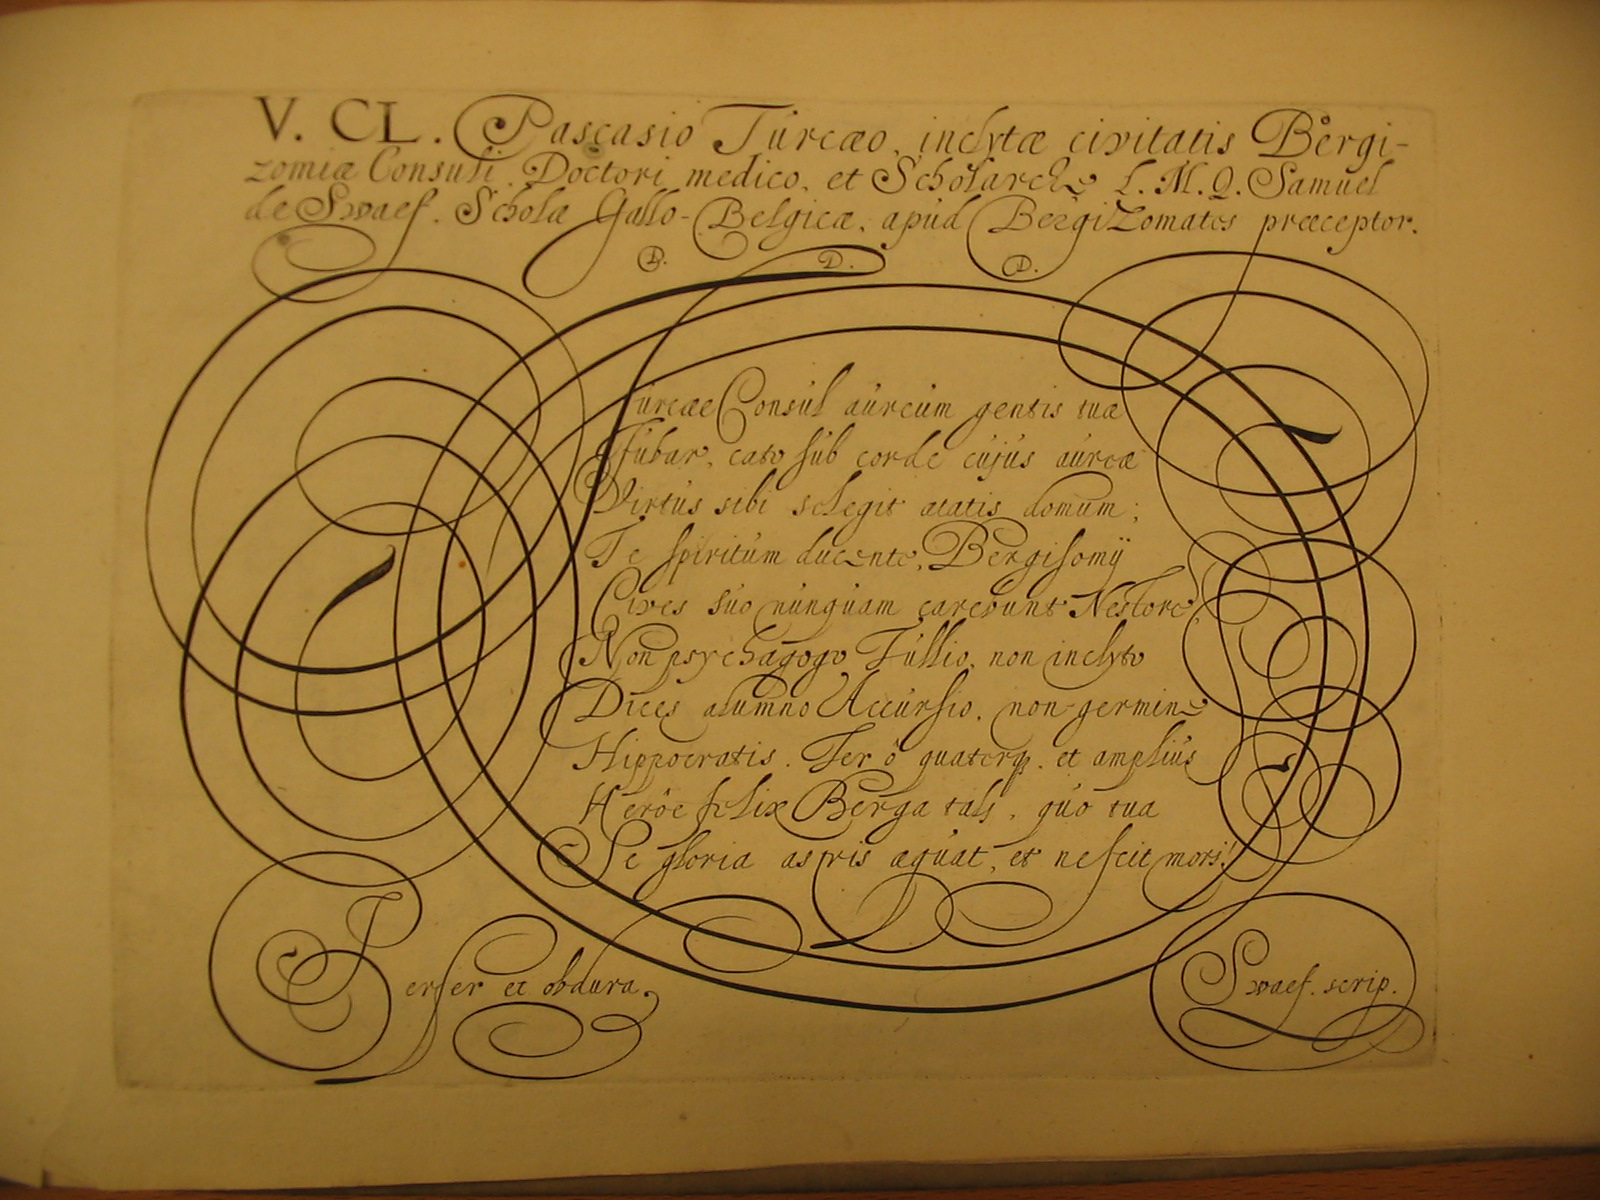 V. CL. Pascasio Turcæo, inclytæ civitatis Bergi-
zomiæ Consuli, Doctori medico, et Scholarchæ L. M. Q. Samuel
de Swaef. Scholæ Gallo-Belgicæ, apud BergiZomates præceptor.
D. D. D.
Turcæe Consul aureum gentis tuæ
Jubar, cato sub corde cujus aureæ
Virtus sibi selegit ætatis domum;
Te spiritum ducente, Bergisomij
Cives suo nunquam carebunt Nestore,
Non psychagogo Tullio, non inclyto
Dices alumno Accursio, non germine
Hippocratis. Ter ô quaterq, et amplius
Herôe felix Berga tali, quo tua
Se gloria astris æquat, et nescit mori!
Perfer et obdura,
Swaef. scrip.